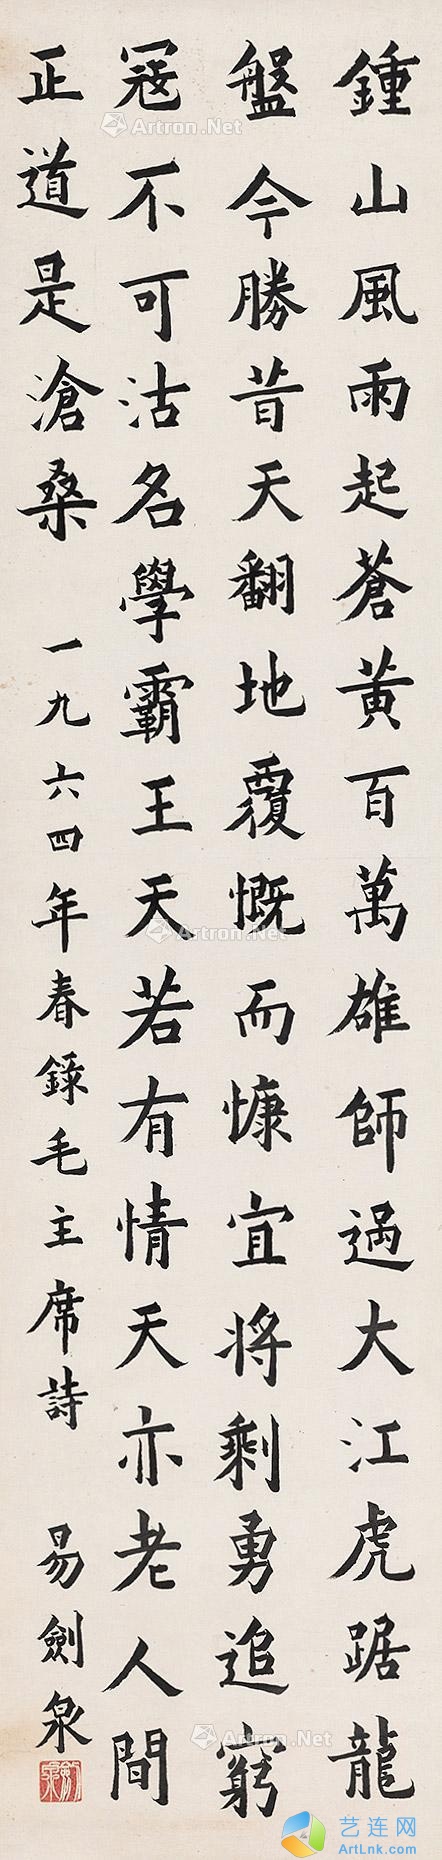 鍾山風雨起蒼黃百萬雄師過大江虎踞龍
盤今勝昔天翻地覆慨而慷宜將剩勇追窮
寇不可沽名學霸王天若有情天亦老人間
正道是滄桑 一九六四年春錄毛主席詩 易劍泉
Artron.Net
Artron.Net
Artron.Net
艺连网
ArtLnk.com